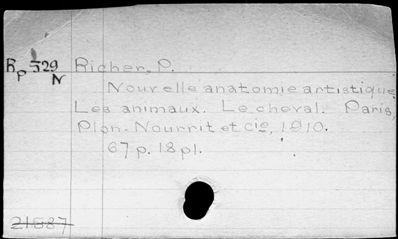 Rp 529 Richer, P.
N
Nouvelle anatomie artistique
Les animaux. Le cheval. Paris,
Plon-Nourrit et cie, 1910.
67 p. 18 pl.
21587